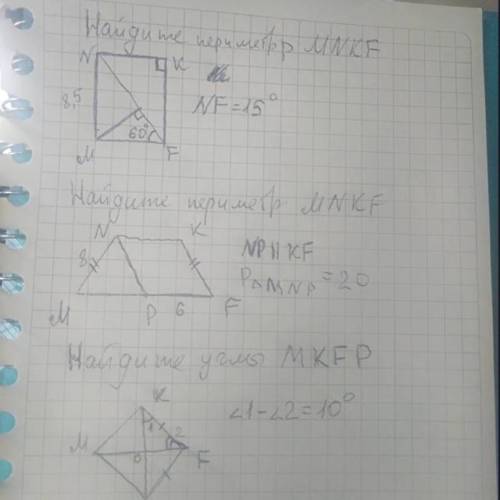 Найдите периметр MNKF
N K
NF=15°
8,5
60°
M F
Найдите периметр MNKF
N K
NP||KF
8
P△MNP=20
6
M P F
Найдите углы MKFP
K
∠1-∠2=10°
1 2
M O F